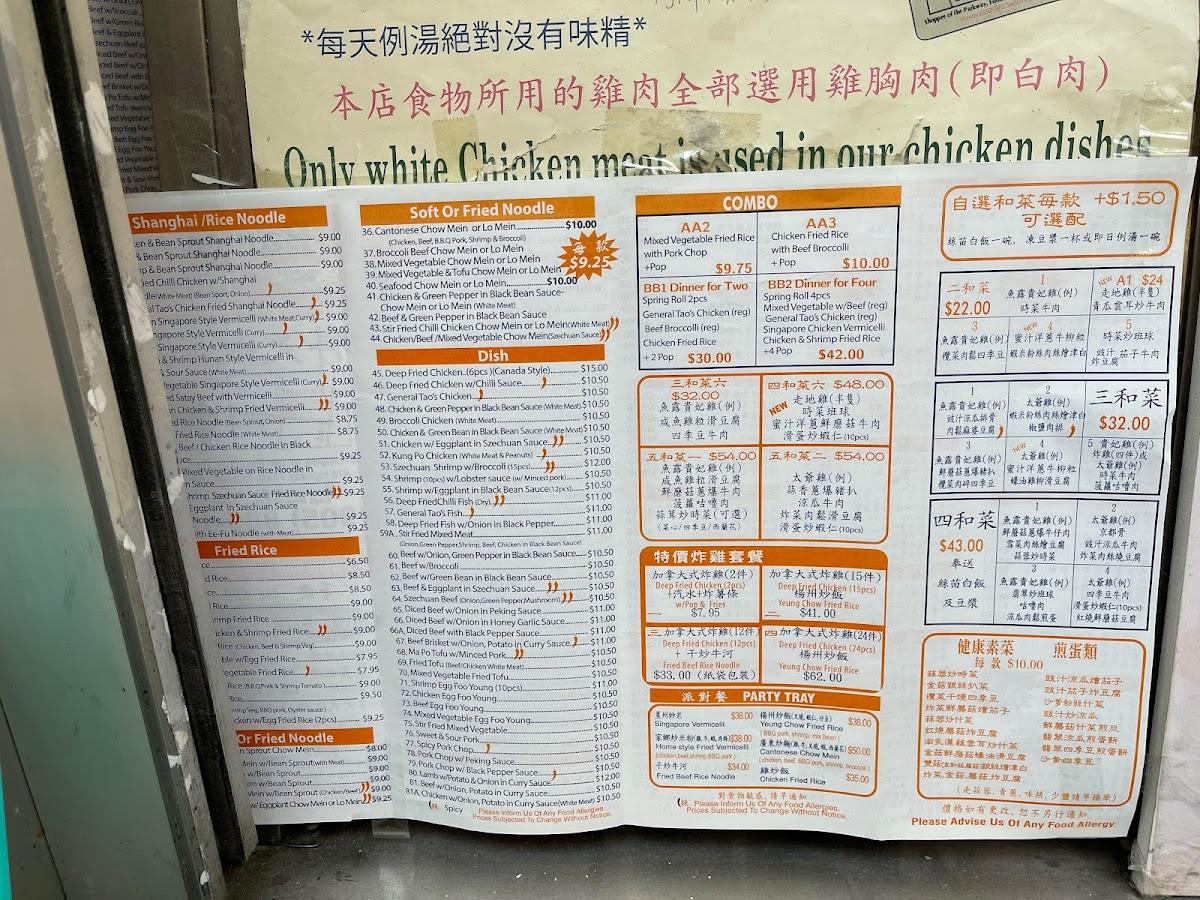 *每天例湯絕對沒有味精*
本店食物所用的雞肉全部選用雞胸肉(即白肉)
Only white Chicken meat is used in our chicken dishes
Shanghai /Rice Noodle
& Bean Sprout Shanghai Noodle $9.00
& Bean Sprout Shanghai Noodle $9.00
& Bean Sprout Shanghai Noodle $9.00
Chilli Chicken w/Shanghai
(White Meat) (Bean Sport, Onion) $9.25
Tao's Chicken Fried Shanghai Noodle $9.25
Singapore Style Vermicelli (White Meat,Curry) $9.00
Singapore Style Vermicelli (Curry) $9.00
Singapore Style Vermicelli (Curry) $9.00
& Shrimp Hunan Style Vermicelli in
& Sour Sauce (White Meat) $9.00
Vegetable Singapore Style Vermicelli (Curry) $9.00
Satay Beef with Vermicelli $9.00
Chicken & Shrimp Fried Vermicelli $9.00
Rice Noodle (Bean Sprout, Onion) $8.75
Fried Rice Noodle (White Meat) $8.75
Beef / Chicken Rice Noodle in Black
$9.25
Mixed Vegetable on Rice Noodle in
Sauce $9.25
Shrimp Szechuan Sauce Fried Rice Noodle $9.25
Eggplant in Szechuan Sauce
Noodle $9.25
with Ee-Fu Noodle (with Meat) $9.25
Fried Rice
$6.50
Rice $8.50
Rice $8.50
Fried Rice $9.00
& Shrimp Fried Rice $9.00
Rice (Chicken, Beef & Shrimp,Veg) $9.00
w/Egg Fried Rice $7.95
Vegetable Fried Rice $7.95
Rice (BBQ Pork & Shrimp Tomato) $9.00
$9.50
w/Egg Fried Rice (2pcs) $9.25
Or Fried Noodle
Sprout Chow Mein $8.00
w/Bean Sprout (with Meat) $9.00
w/Bean Sprout $9.00
w/Bean Sprout (Chicken/Beef) $9.00
w/ Eggplant Chow Mein or Lo Mein $9.25
Soft Or Fried Noodle
36.Cantonese Chow Mein or Lo Mein $10.00
(Chicken, Beef, B.B.Q Pork, Shrimp & Broccoli)
37.Broccoli Beef Chow Mein or Lo Mein
38.Mixed Vegetable Chow Mein or Lo Mein
39.Mixed Vegetable &Tofu Chow Mein or Lo Mein
40.Seafood Chow Mein or Lo Mein $10.00
每款 $9.25
41.Chicken & Green Pepper in Black Bean Sauce-
Chow Mein or Lo Mein (White Meat)
42.Beef & Green Pepper in Black Bean Sauce
43.Stir Fried Chilli Chicken Chow Mein or Lo Mein(White Meat)
44.Chicken/Beef /Mixed Vegetable Chow Mein(Szechuan Sauce)
Dish
45. Deep Fried Chicken..(6pcs )(Canada Style) $15.00
46. Deep Fried Chicken w/Chilli Sauce $10.50
47. General Tao's Chicken $10.50
48. Chicken & Green Pepper in Black Bean Sauce (White Meat) $10.50
49. Broccoli Chicken (White Meat) $10.50
50. Chicken & Green Bean in Black Bean Sauce(White Meat) $10.50
51. Chicken w/ Eggplant in Szechuan Sauce $10.50
52. Kung Po Chicken (White Meat & Peanuts) $10.50
53. Szechuan Shrimp w/Broccoli (15pcs) $12.00
54. Shrimp (10pcs) w/Lobster sauce (w/ Minced pork) $10.50
55. Shrimp w/Eggplant in Black Bean Sauce(12pcs) $10.50
56. Deep FriedChilli Fish (Dry) $11.00
57. General Tao's Fish $11.00
58. Deep Fried Fish w/Onion in Black Pepper $11.00
59A .Stir Fried Mixed Meat $11.00
(Onion,Green Pepper,Shrimp, Beef, Chicken In Black Bean Sauce)
60. Beef w/Onion, Green Pepper in Black Bean Sauce $10.50
61. Beef w/Broccoli $10.50
62. Beef w/Green Bean in Black Bean Sauce $10.50
63. Beef & Eggplant in Szechuan Sauce $10.50
64. Szechuan Beef (Onion,Green Pepper,Mushroom) $10.50
65. Diced Beef w/Onion in Peking Sauce $11.00
66. Diced Beef w/Onion in Honey Garlic Sauce $11.00
66A. Diced Beef with Black Pepper Sauce $11.00
67. Beef Brisket w/Onion, Potato in Curry Sauce $11.00
68. Ma Po Tofu w/Minced Pork $10.50
69. Fried Tofu (Beef/Chicken White Meat) $10.50
70. Mixed Vegetable Fried Tofu $10.50
71. Shrimp Egg Foo Young (10pcs) $11.00
72. Chicken Egg Foo Young $10.50
73. Beef Egg Foo Young $10.50
74. Mixed Vegetable Egg Foo Young $10.50
75. Stir Fried Mixed Vegetable $10.50
76. Sweet & Sour Pork $10.50
77. Spicy Pork Chop $10.50
78. Pork Chop w/ Peking Sauce $10.50
79. Pork Chop w/ Black Pepper Sauce $10.50
80. Lamb w/Potato & Onion in Curry Sauce $12.00
81. Beef w/Onion, Potato in Curry Sauce $10.50
81A. Chicken w/Onion, Potato in Curry Sauce(White Meat) $10.50
辣 Spicy
Please Inform Us Of Any Food Allergies
Prices Subjected To Change Without Notice.
COMBO
AA2
Mixed Vegetable Fried Rice
with Pork Chop
+Pop $9.75
AA3
Chicken Fried Rice
with Beef Broccoli
+ Pop $10.00
BB1 Dinner for Two
Spring Roll 2pcs
General Tao's Chicken (reg)
Beef Broccoli (reg)
Chicken Fried Rice
+2 Pop $30.00
BB2 Dinner for Four
Spring Roll 4pcs
Mixed Vegetable w/Beef (reg)
General Tao's Chicken (reg)
Singapore Chicken Vermicelli
Chicken & Shrimp Fried Rice
+4 Pop $42.00
三和菜六
$32.00
魚露貴妃雞(例)
咸魚雞粒滑豆腐
四季豆牛肉
四和菜六 $48.00
NEW 走地雞(半隻)
時菜班球
蜜汁洋蔥鮮蘑菇牛肉
滑蛋炒蝦仁(10pcs)
五和菜一 $54.00
魚露貴妃雞(例)
咸魚雞粒滑豆腐
鮮蘑菇蔥爆牛肉
菠蘿咕嚕肉
蒜茸炒時菜(可選)
(菜心/四季豆/西蘭花)
五和菜二 $54.00
太爺雞(例)
蒜香蔥爆豬扒
涼瓜牛肉
炸菜肉鬆滑豆腐
滑蛋炒蝦仁(10pcs)
特價炸雞套餐
加拿大式炸雞(2件)
Deep Fried Chicken (2pcs)
+汽水+炸薯條
w/Pop & Fries
一 $7.95
加拿大式炸雞(15件)
Deep Fried Chicken (15pcs)
楊州炒飯
Yeung Chow Fried Rice
二 $41.00
三 加拿大式炸雞(12件)
Deep Fried Chicken (12pcs)
+ 干炒牛河
Fried Beef Rice Noodle
$33.00 (紙袋包裝)
四 加拿大式炸雞(24件)
Deep Fried Chicken (24pcs)
楊州炒飯
Yeung Chow Fried Rice
$62.00
派對餐 PARTY TRAY
星州炒米 $38.00
Singapore Vermicelli
家鄉炒米粉 $38.00
Home style Fried Vermicelli
(chicken,beef,shrimp,BBQ pork)
干炒牛河 $34.00
Fried Beef Rice Noodle
楊州炒飯 $38.00
Yeung Chow Fried Rice
(BBQ pork, shrimp, mix bean)
廣東炒麵 $50.00
Cantonese Chow Mein
(chicken, beef, BBQ pork, shrimp, broccoli)
雞炒飯 $35.00
Chicken Fried Rice
對食物敏感,請早通知
辣 Please Inform Us Of Any Food Allergies
Prices Subjected To Change Without Notice.
自選和菜每款 +$1.50
可選配
絲苗白飯一碗, 凍豆漿一杯或即日例湯一碗
二和菜
$22.00
1
魚露貴妃雞(例)
時菜牛肉
NEW A1 $24
走地雞(半隻)
青瓜雲耳炒牛肉
3
魚露貴妃雞(例)
欖菜肉鬆四季豆
NEW 4
蜜汁洋蔥牛柳粒
蝦米粉絲肉絲津白
5
時菜炒班球
豉汁茄子牛肉
炸豆腐
1
魚露貴妃雞(例)
豉汁涼瓜排骨
肉鬆麻婆豆腐
2
太爺雞(例)
蝦米粉絲肉絲津白
椒鹽肉排
三和菜
$32.00
3
魚露貴妃雞(例)
鮮蘑菇蔥爆豬扒
欖菜肉碎四季豆
NEW 4
太爺雞(例)
蜜汁洋蔥牛柳粒
蠔油雞柳滑豆腐
5 貴妃雞(例)
炸雞(四件)或
太爺雞(例)
時菜牛肉
菠蘿咕嚕肉
四和菜
$43.00
奉送
絲苗白飯
及豆漿
1
魚露貴妃雞(例)
鮮蘑菇蔥爆牛仔肉
雪菜肉絲燴豆腐
蒜蓉炒時菜
2
太爺雞(例)
京都骨
豉汁涼瓜牛肉
炸菜肉絲燒豆腐
3
魚露貴妃雞(例)
翡翠炒班球
咕嚕肉
涼瓜肉鬆煎蛋
4
太爺雞(例)
四季豆牛肉
滑蛋炒蝦仁(10pcs)
紅燒鮮菇豆腐
健康素菜 煎蛋類
每 款 $10.00
蒜蓉炒時菜
金菇銀絲扒菜
欖菜干燒四季豆
炸菜鮮蘑菇燴茄子
蒜蓉炒什菜
紅燒蘑菇豆腐
金菇鮮蘑菇蠔油滑豆腐
炸菜.金菇.蘑菇.炸豆腐
豉汁涼瓜燴茄子
豉汁茄子炸豆腐
沙爹粉絲什菜
豉汁炒涼瓜
鮮菇什菜煎旦
翡翠涼瓜煎蛋餅
翡翠四季豆煎蛋餅
沙爹四季豆
(走蒜蓉, 青蔥, 味精, 少鹽請早揚聲)
價格如有更改, 恕不另行通知
Please Advise Us Of Any Food Allergy